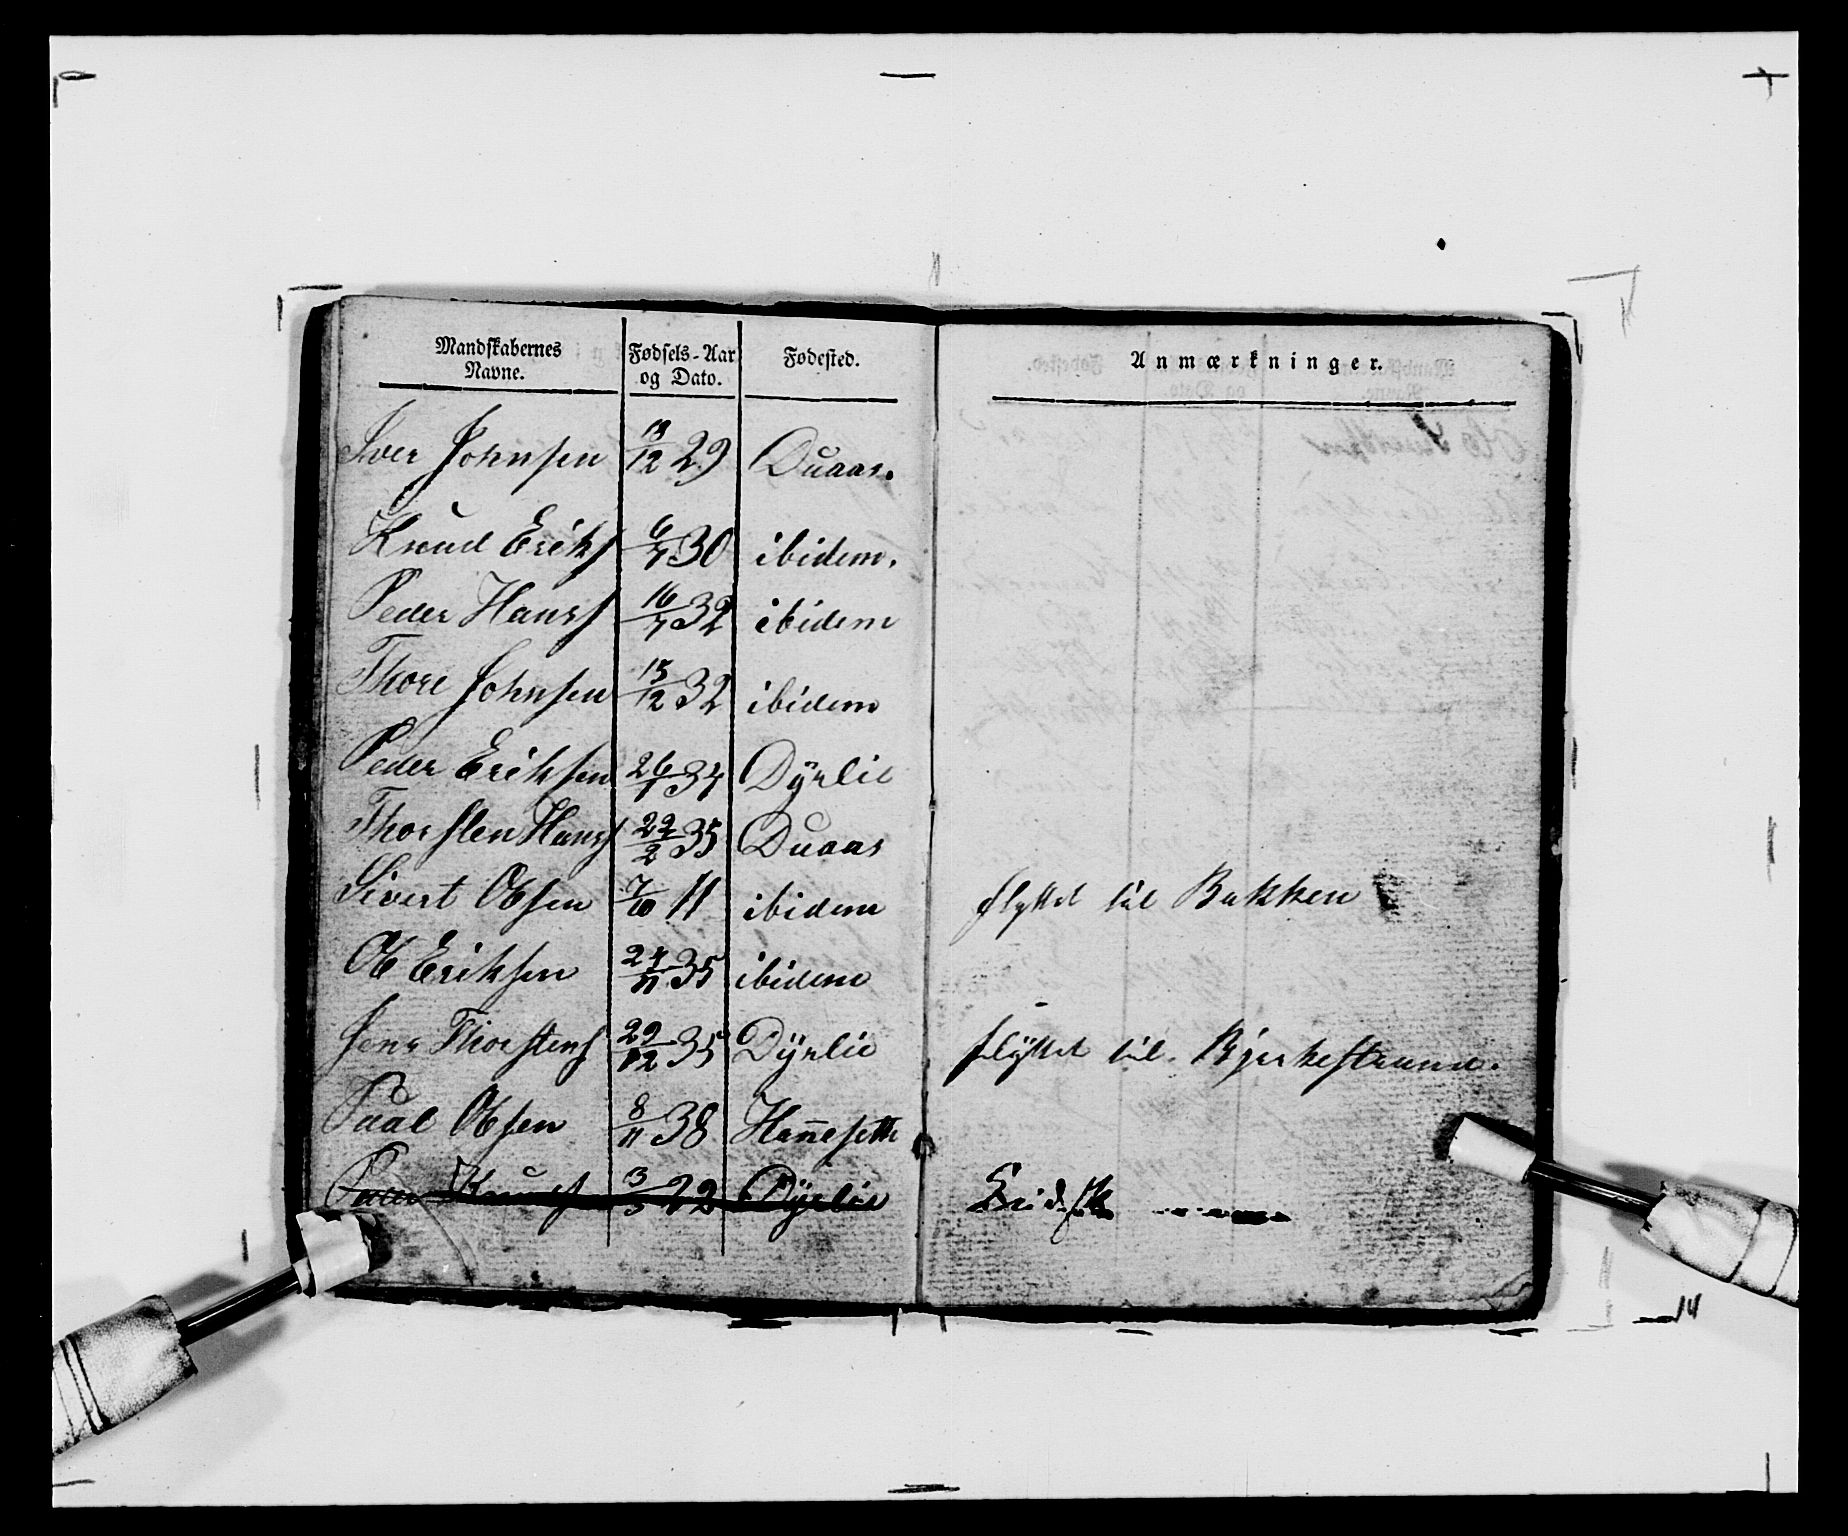 Mandskabernes Navne. Fødsels-Aar og Dato. Fødested. Anmærkninger.
Iver Johnsen 13/12 29 Duaas.
Knud Eriks 6/7 30 ibidem.
Peder Hans 16/7 32 ibidem
Thore Johnsen 15/12 32 ibidem
Peder Eriksen 26/1 34 Dÿrlie
Thorsten Hans 22/2 35 Duaas
Sivert Olsen 7/10 11 ibidem flyttet til Bakken
Ol Eriksen 24/11 35 ibidem
Jens Thorstens 29/12 35 Dÿrlie flÿttet til Bjerkestrand.
Paal Olsen 8/11 38 Han̄eseth
Peder Knuds 3/5 22 Dÿrlie
14